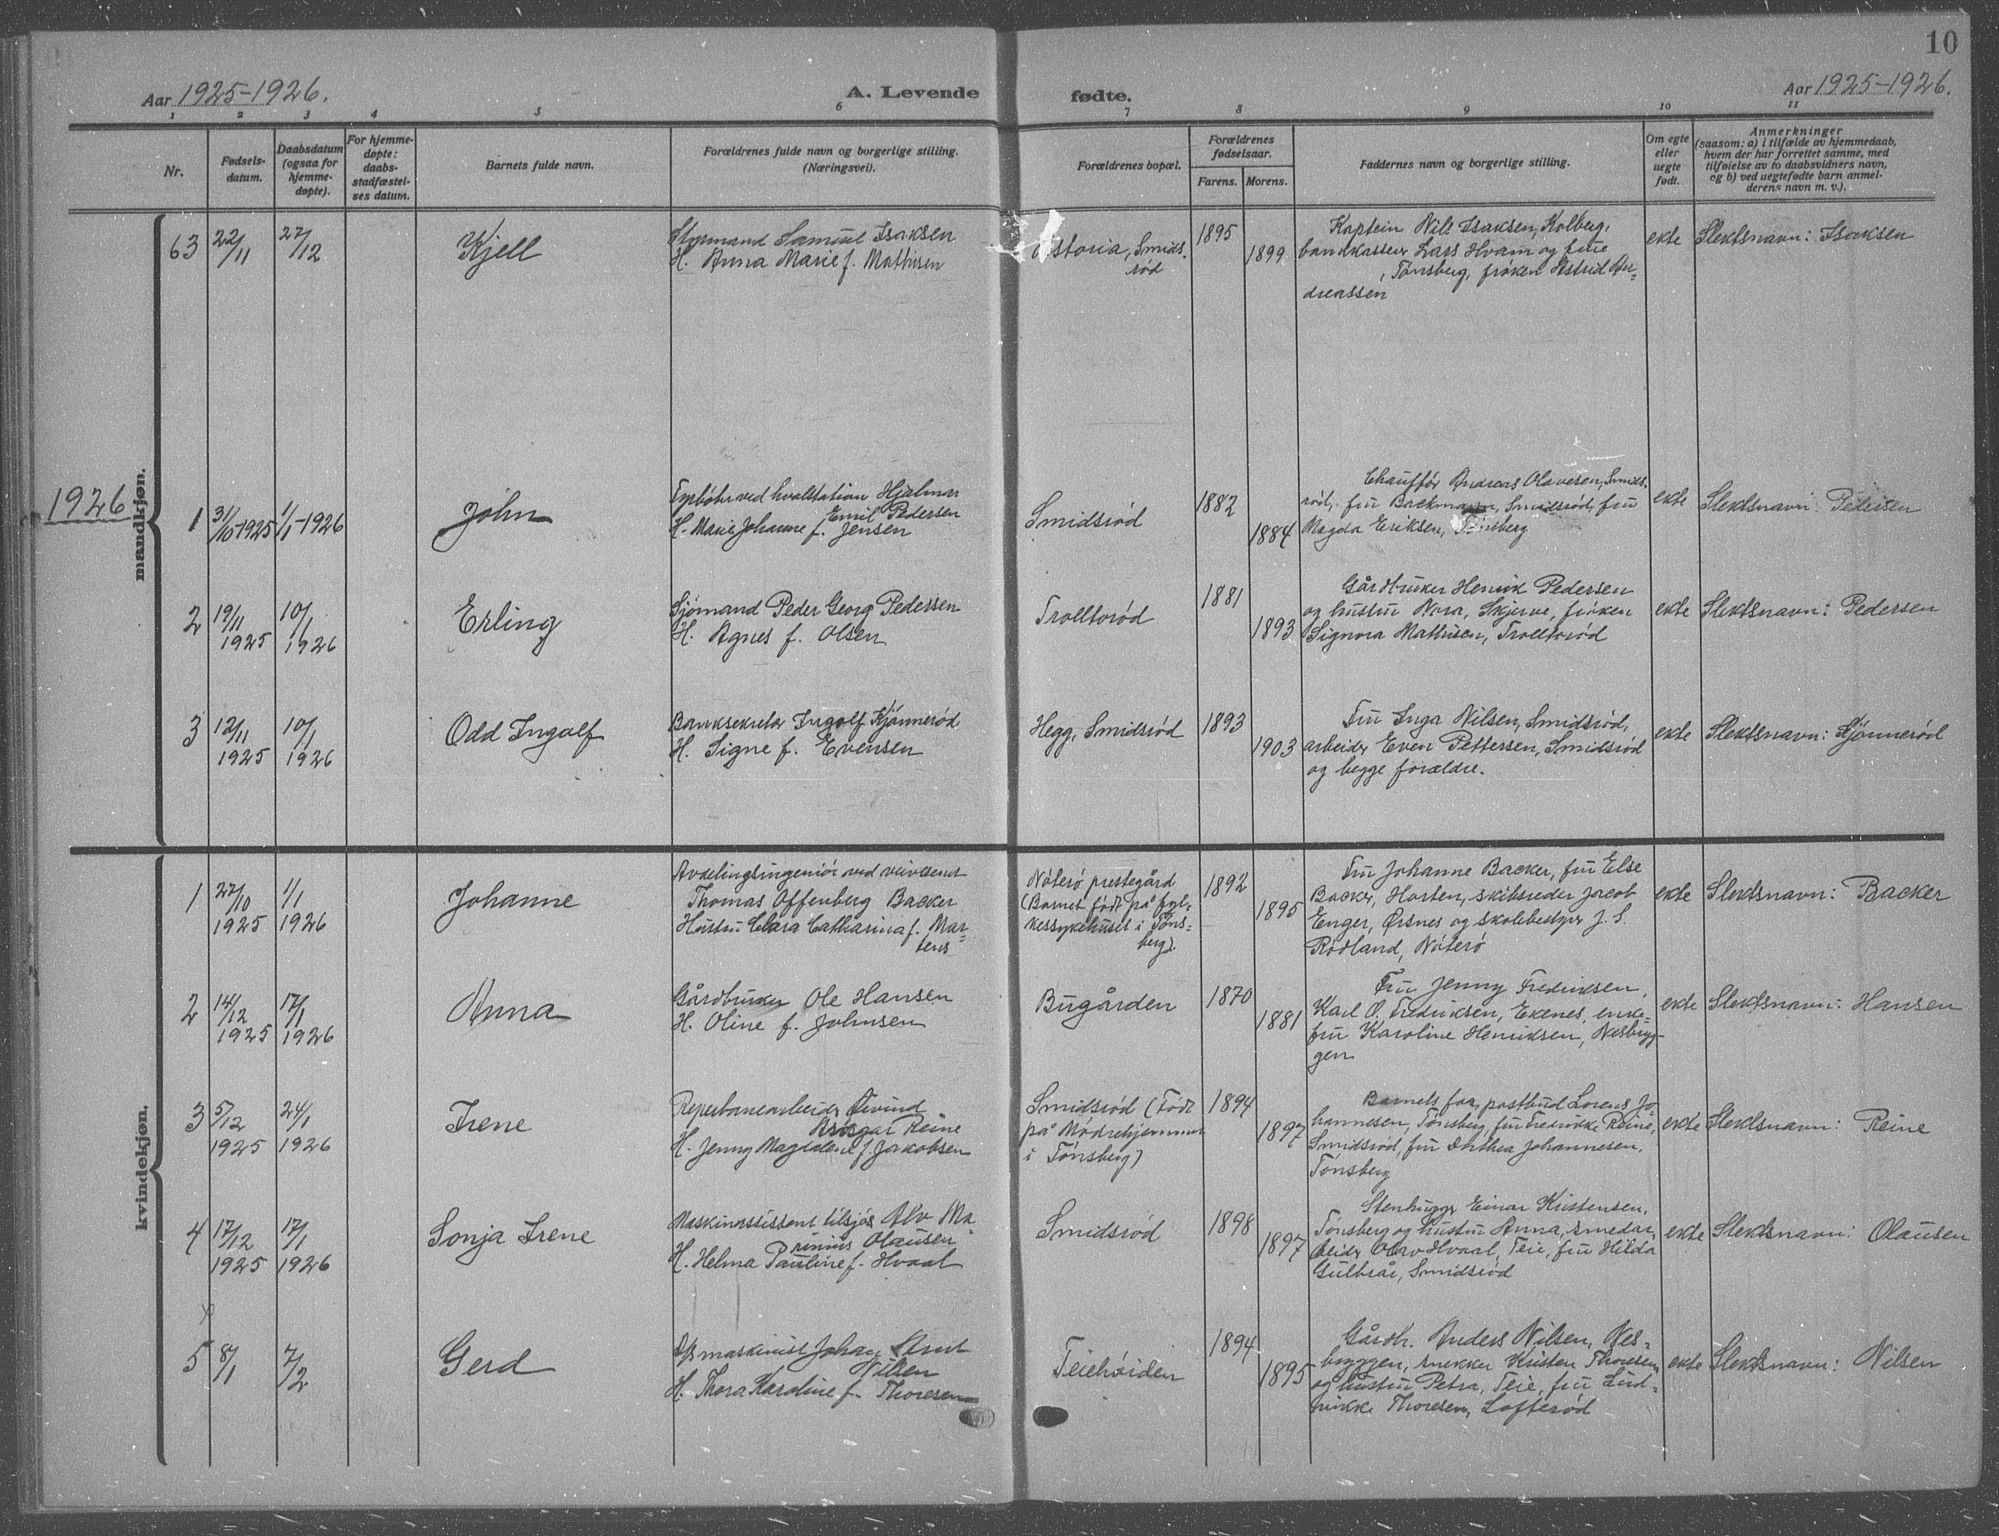 10
Aar 1925-1926.
A. Levende
fødte.
Aar 1925-1926.
1 2 3 4 5 6 7 8 9 10 11
Nr.
Fødsels-
datum.
Daabsdatum
(ogsaa for
hjemme-
døpte).
For hjemme-
døpte:
daabs-
stadfæstel-
ses datum.
Barnets fulde navn.
Forældrenes fulde navn og borgerlige stilling.
(Næringsvei).
Forældrenes bopæl.
Forældrenes
fødselsaar.
Farens. Morens.
Faddernes navn og borgerlige stilling.
Om egte
eller
uegte
født.
Anmerkninger
(saasom: a) i tilfælde av hjemmedaab,
hvem der har forrettet samme, med
tilføielse av to daabsvidners navn,
og b) ved uegtefødte barn anmel-
derens navn m. v.).
mandkjøn.
63
22/11
27/12
Kjell
Styrmand Samuel Isaksen
H. Anna Marie f. Mathisen
Astoria, Smids-
rød
1895
1899
Kaptein Nils Isaksen, Kolberg,
bankkasserer Lars Hvam og frue
, Tønsberg, frøken Astrid An-
dreassen
ekte
Slektsnavn: Isaksen
1926
1
31/10 1925
1/1-1926
John
ved hvalstation Hjalmar
Emil Pedersen
H. Marie Johanne f. Jensen
Smidsrød
1882
1884
Chauffør Andreas Olavesen, Smids-
rød, fru Backmann, Smidsrød, fru
Magda Eriksen, Tønsberg
ekte
Slektsnavn: Pedersen
2
19/11
1925
10/1
1926
Erling
Sjømand Peder Georg Pedersen
H. Agnes f. Olsen
Trolltorød
1881
1893
Gårdbruker Henrik Pedersen
og hustru Nora, Skjerve, frøken
Signora Mathisen, Trolltorød
ekte
Slektsnavn: Pedersen
3
12/11
1925
10/1
1926
Odd Ingolf
Banksekretær Ingolf Kjønnerød
H. Signe f. Evensen
Hegg, Smidsrød
1893
1903
Fru Inga Nilsen, Smidsrød,
arbeider Even Pettersen, Smidsrød
og begge forældre.
ekte
Slektsnavn: Kjønnerød
kvindekjøn.
1
27/10
1925
1/1
1926
Johanne
Avdelingsingeniør ved veivesenet
Thomas Offenberg Backer
Hustru Clara Catharina f. Mar-
tens
Nøterø prestegård
(Barnet født på fyl-
kessykehuset i Tøns-
berg).
1892
1895
Fru Johanne Backer, fru Else
Backer, Horten, skibsreder Jacob
Enger, Ørsnes og skolebestyrer J. S.
Rødland, Nøterø
ekte
Slektsnavn: Backer
2
14/12
1925
17/1
1926
Anna
Gårdbruker Ole Hansen
H. Oline f. Johnsen
Bugården
1870
1881
Fru Jenny Fredriksen,
Karl O. Fredriksen, Ekenes, enke-
fru Karoline Henriksen, Nesbryg-
gen
ekte
Slektsnavn: Hansen
3
5/12
1925
24/1
1926
Irene
Reperbanearbeider Øivind
Ansgar Reine
H. Jenny Magdalene f. Jakobsen
Smidsrød (Født
på Mødrehjemmet
i Tønsberg)
1894
1897
Barnets far, postbud Lorens Jo-
hannesen, Tønsberg, fru Fredrikke Reine,
Smidsrød, fru Dorthea Johannesen,
Tønsberg
ekte
Slektsnavn: Reine
4
17/12
1925
17/1
1926
Sonja Irene
Maskinassistent tilsjøs Alv Ma-
rinius Olausen
H. Helma Pauline f. Hvaal
Smidsrød
1898
1897
Stenhugger Einar Kristensen,
Tønsberg og hustru Anna, smedar-
beider Olav Hvaal, Teie, fru Hilda
Gulbrår, Smidsrød
ekte
Slektsnavn: Olausen
x
5
8/1
7/2
Gerd
maskinist Johan Arnt
Nilsen
H. Thora Karoline f. Thoresen
Teiehøiden
1894
1895
Gårdbr. Anders Nilsen, Nes-
bryggen, snekker Kristen Thoresen
og hustru Petra, Teie, fru Lud-
rikke Thoresen, Lofterød
ekte
Slektsnavn: Nilsen